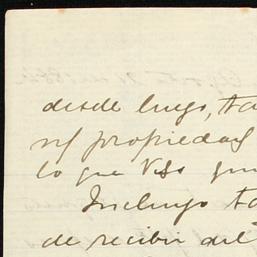 desde luego, ta
n/ propiedad
lo que Vds
Incluyo ta
de recibir del